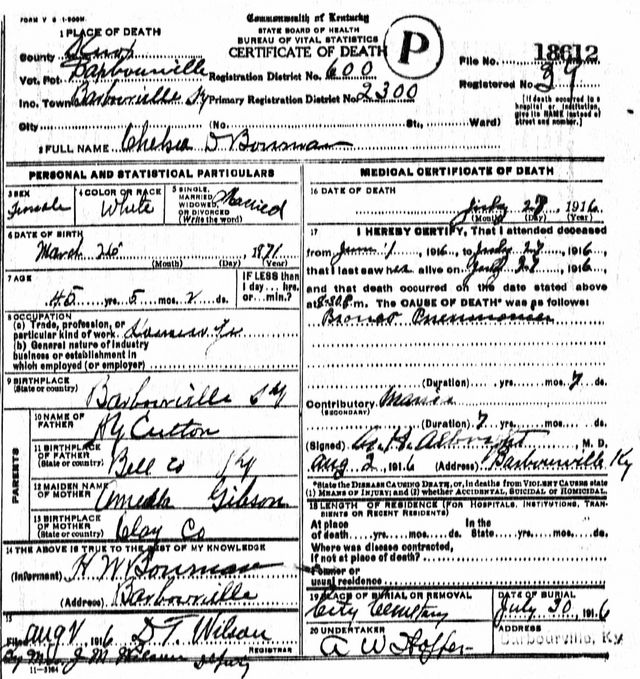 FORM V S 1-500M.
Commonwealth of Kentucky
STATE BOARD OF HEALTH
BUREAU OF VITAL STATISTICS
CERTIFICATE OF DEATH
P
1 PLACE OF DEATH
County Knox
Vot. Pct. Barbourville Registration District No. 600
Inc. Town Barbourville Ky Primary Registration District No. 2300
City (No. St., Ward)
File No. 18612
Registered No. 39
[If death occurred in a hospital or institution, give its NAME instead of street and number.]
2 FULL NAME Chelsea D Bowman
PERSONAL AND STATISTICAL PARTICULARS
3 SEX Female
4 COLOR OR RACE White
5 SINGLE, MARRIED, WIDOWED, OR DIVORCED (Write the word) Married
6 DATE OF BIRTH
March 26, 1871
(Month) (Day) (Year)
7 AGE
45 yrs. 5 mos. 2 ds.
IF LESS than 1 day... hrs. or... min.?
8 OCCUPATION
(a) Trade, profession, or
particular kind of work
(b) General nature of industry
business or establishment in
which employed (or employer)
9 BIRTHPLACE
(State or country) Barbourville Ky
PARENTS
10 NAME OF FATHER
11 BIRTHPLACE OF FATHER
(State or country) Bell Co Ky
12 MAIDEN NAME OF MOTHER Gibson
13 BIRTHPLACE OF MOTHER
(State or country) Clay Co
14 THE ABOVE IS TRUE TO THE BEST OF MY KNOWLEDGE
(Informant) H W Bowman
(Address) Barbourville
15
Filed Aug 1916 D T. Wilson
REGISTRAR
By Mrs J M Wilson Deputy
11-3184
MEDICAL CERTIFICATE OF DEATH
16 DATE OF DEATH
July 28, 1916
(Month) (Day) (Year)
17 I HEREBY CERTIFY, That I attended deceased
from June 1, 1916, to July 28, 1916
that I last saw her alive on July 28, 1916,
and that death occurred on the date stated above
at 8-30 P.m. The CAUSE OF DEATH* was as follows:
Bronco Pneumonia
(Duration) yrs. mos. 7 ds.
Contributory
(SECONDARY)
(Duration) 7 yrs. mos. ds.
(Signed) Albright, M. D.
Aug 2, 1916 (Address) Barbourville Ky
*State the DISEASE CAUSING DEATH, or, in deaths from VIOLENT CAUSES state
(1) MEANS OF INJURY; and (2) whether ACCIDENTAL, SUICIDAL or HOMICIDAL.
18 LENGTH OF RESIDENCE (FOR HOSPITALS, INSTITUTIONS, TRANSIENTS OR RECENT RESIDENTS)
At place of death yrs. mos. ds. In the State yrs. mos. ds.
Where was disease contracted,
if not at place of death?
Former or
usual residence
19 PLACE OF BURIAL OR REMOVAL
City Cemetery
DATE OF BURIAL
July 30, 1916
20 UNDERTAKER
A W Hopper
ADDRESS
Barbourville, Ky.